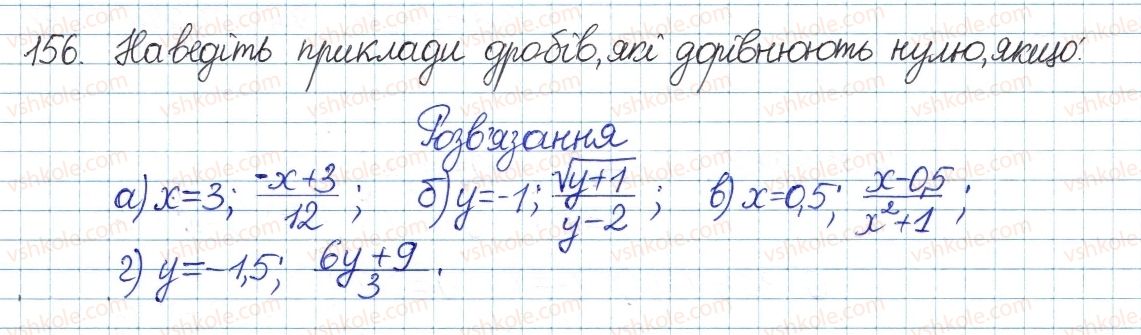 156. Наведіть приклади дробів, які дорівнюють нулю, якщо:
Розв'язання
а) x=3; (-x+3)/12; б) y=-1; √(y+1)/(y-2); в) x=0,5; (x-0,5)/(x²+1);
г) y=-1,5; (6y+9)/3.